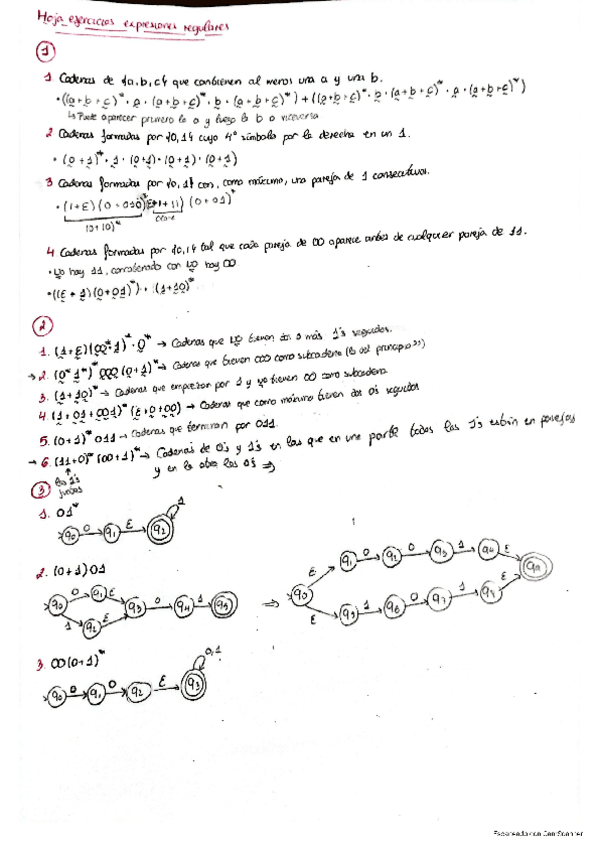 Hoja ejercicios expresiones regulares
1
1 Cadenas de {a,b,c} que contienen al menos una a y una b.
• ((a+b+c)* · a · (a+b+c)* · b · (a+b+c)*) + ((a+b+c)* · b · (a+b+c)* · a · (a+b+c)*)
↳ Puede aparecer primero la a y luego la b o viceversa
2 Cadenas formadas por {0,1} cuyo 4º símbolo por la derecha en un 1.
• (0+1)* · 1 · (0+1) · (0+1) · (0+1)
3 Cadenas formadas por {0,1} con, como máximo, una pareja de 1 consecutivos.
(0+01)*
4 Cadenas formadas por {0,1} tal que cada pareja de 00 aparece antes de cualquier pareja de 11.
• No hay 11, concatenado con no hay 00
• ((ε + 1)(0+01)*) · (1+10)*
2
1. (1+ε)(00*1)* · 0* → Cadenas que no tienen dos o más 1's seguidos.
→ 2. (0*1*)* 000 (0+1)* → Cadenas que tienen 000 como subcadena
3. (1+10)* → Cadenas que empiezan por 1 y no tienen 00 como subcadena
4 (1+01+001)* (ε+0+00) → Cadenas que como máximo tienen dos 0's seguidos
5. (0+1)* 011 → Cadenas que terminan por 011.
→ 6. (11+0)* (00+1)* → Cadenas de 0's y 1's en las que en una parte todos los 1's están en parejas
y en la otra los 0's ⇒
los 1's
juntos
3
1. 01*
q0 0 q1 ε q2 1
2. (0+1)01
q0 0 q1 ε q3 0 q4 1 q5
1 q2 ε
⇒
q0 ε q1 0 q2 0 q3 1 q4 ε
ε q5 1 q6 0 q7 1 q8 ε
3. 00(0+1)*
q0 0 q1 0 q2 ε q3 0,1
Escaneado con CamScanner